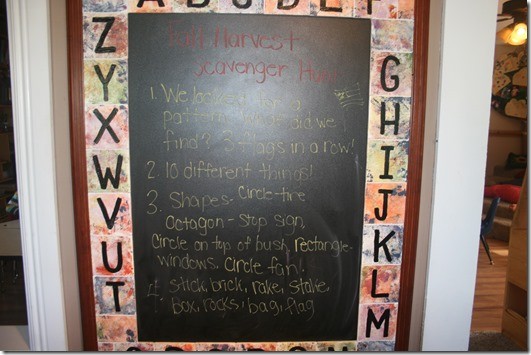 A B C D E F
Z
Y
X
W
V
U
T
G
H
I
J
K
L
M
Fall Harvest
Scavenger Hunt
1. We looked for a
pattern. What did we
find? 3 flags in a row!
2. 10 different things!
3. Shapes. Circle-tire
Octagon - stop sign,
Circle on top of bush, rectangle-
windows. Circle fan!
4. stick, brick, rake, stake,
Box, rocks, bag, flag